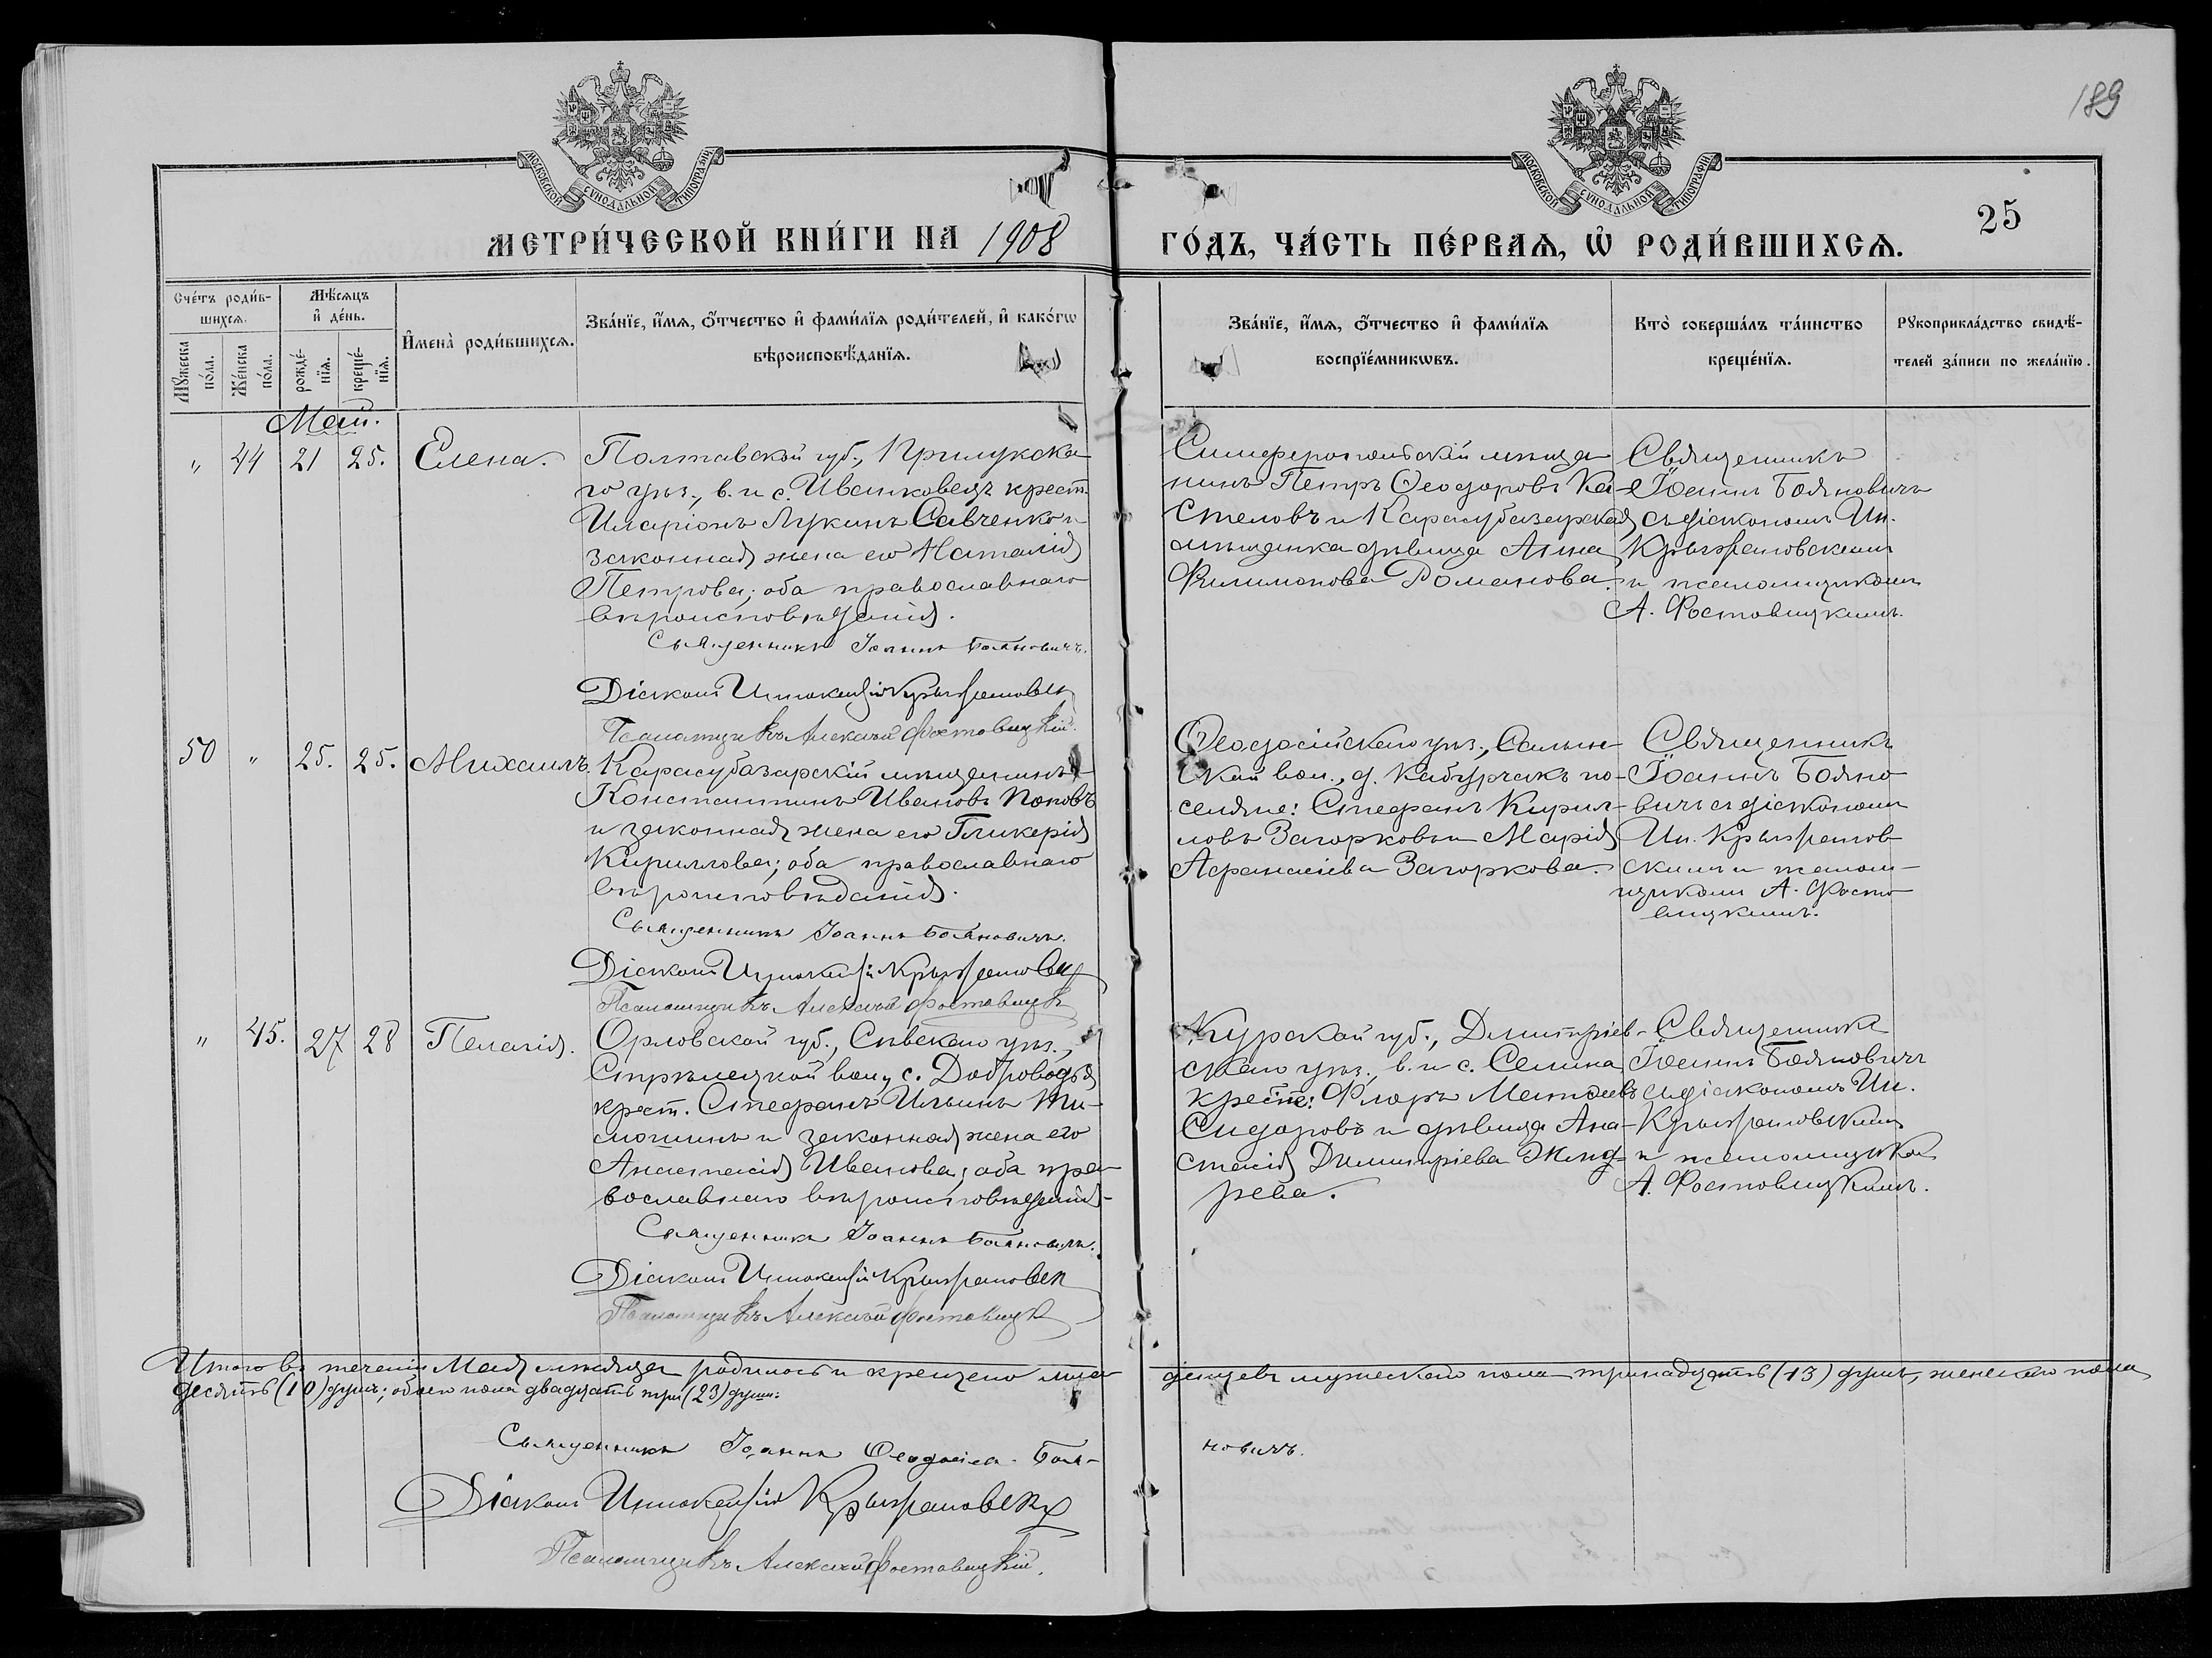 189
МОСКОВСКОЙ СУНОДАЛЬНОЙ ТИПОГРАФІИ
МОСКОВСКОЙ СУНОДАЛЬНОЙ ТИПОГРАФІИ
25
МЕТРИ́ЧЕСКОЙ КНИ́ГИ НА 1908
ГО́ДЪ, ЧА́СТЬ ПЕ́РВАѦ, Ѡ҆ РОДИ́ВШИХСѦ.
Сче́тъ роди́в-
шихсѧ.
Мꙋ́жеска по́ла.
Же́нска по́ла.
Мѣ́сѧцъ
и҆ де́нь.
рожде́-
нїѧ.
креще́-
нїѧ.
И҆мена̀ роди́вшихсѧ.
Зва́нїе, и҆́мѧ, ѻ҆́тчество и҆ фами́лїѧ роди́телей, и҆ како́гѡ
вѣроисповѣ́данїѧ.
Зва́нїе, и҆́мѧ, ѻ҆́тчество и҆ фами́лїѧ
воспрїе́мникѡвъ.
Кто̀ соверша́лъ та́инство
креще́нїѧ.
Рꙋкоприкла́дство свидѣ́-
телей за́писи по жела́нїю.
Май.
" 44 21 25. Елена.
Полтавской губ., Прилукска-
го уѣз., в. и с. Иванковецъ крест.
Иларіонъ Лукинъ Савченко и
законная жена его Наталія
Петрова; оба православнаго
вѣроисповѣданія.
Священникъ Іоаннъ Бояновичъ.
Діаконъ Иннокентій Крыжановск
Псаломщикъ Алексѣй Фостовицкій.
Симферопольскій мѣща-
нинъ Петръ Ѳеодоровъ Ка-
стеловъ и Карасубазарская
мѣщанка дѣвица Анна
Филимонова Романова.
Священникъ
Іоаннъ Бояновичъ
съ діакономъ Ин.
Крыжановскимъ
и псаломщикомъ
А. Фостовицкимъ.
50 " 25. 25. Михаилъ.
Карасубазарскій мѣщанинъ
Константинъ Ивановъ Поповъ
и законная жена его Гликерія
Кириллова; оба православнаго
вѣроисповѣданія.
Священникъ Іоаннъ Бояновичъ.
Діаконъ Иннокентій Крыжановск
Псаломщикъ Алексѣй Фостовицк
Ѳеодосійскаго уѣз., Салын-
ской вол., д. Кабурчакъ по-
селяне: Стефанъ Кирил-
ловъ Загорковъ и Марія
Афанасіева Загоркова.
Священникъ
Іоаннъ Бояно-
вичъ съ діакономъ
Ин. Крыжанов-
скимъ и псалом-
щикомъ А. Фосто-
вицкимъ.
" 45. 27 28 Пелагія.
Орловской губ., Сѣвскаго уѣз.,
Стрѣлецкой вол., с. Доброводья
крест. Стефанъ Ильинъ
и законная жена его
Анастасія Иванова; оба пра-
вославнаго вѣроисповѣданія.
Священникъ Іоаннъ Бояновичъ.
Діаконъ Иннокентій Крыжановск
Псаломщикъ Алексѣй Фостовицк
Курской губ., Дмитріев-
скаго уѣз., в. и с. Селина
крест.: Флоръ Матѳеевъ
Сидоровъ и дѣвица Ана-
стасія Димитріева Жид-
рева.
Священникъ
Іоаннъ Бояновичъ
съ діакономъ Ин.
Крыжановскимъ
и псаломщиком
А. Фостовицкимъ.
Итого въ теченіи Мая мѣсяца родилось и крещено мла-
денцевъ мужескаго пола тринадцать (13) душъ, женскаго пола
десять (10) душъ; обоего пола двадцать три (23) души.
Священникъ Іоаннъ Ѳеодосіев. Боя-
новичъ.
Діаконъ Иннокентій Крыжановскій
Псаломщикъ Алексѣй Фостовицкій.